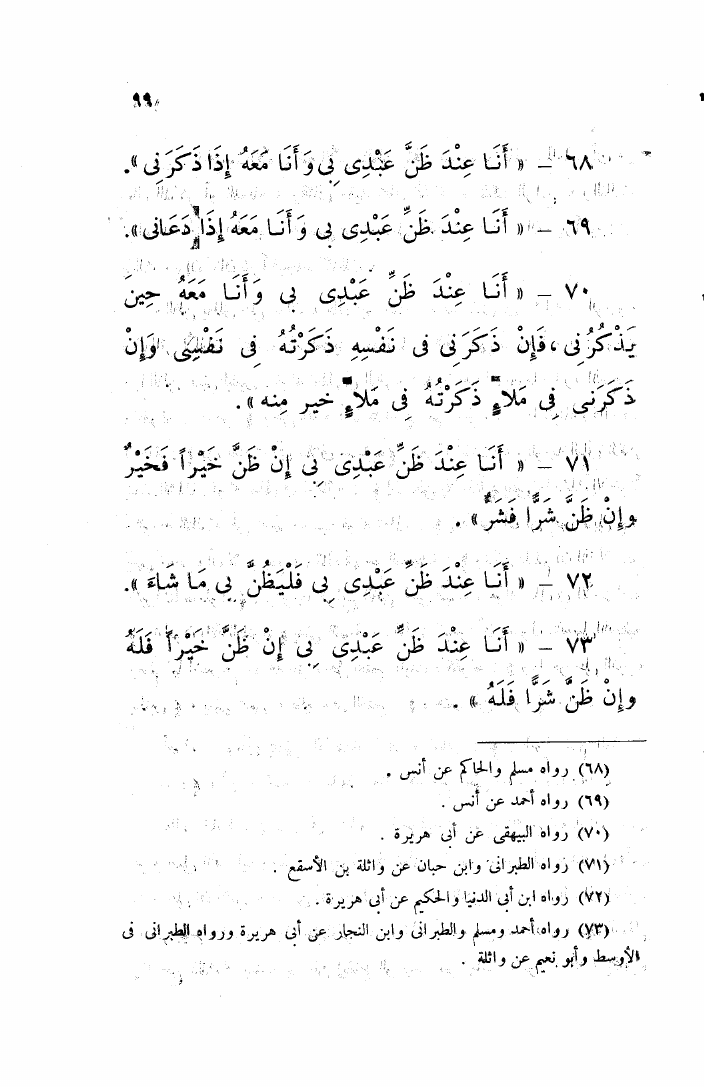 ٩٩
٦٨ – « أَنَا عِنْدَ ظَنَّ عَبْدِى بِى وَأَنَا مَعَهُ إِذَا ذَكَرَنِى ».
٦٩ – « أَنَا عِنْدَ ظَنِّ عَبْدِى بِى وَأَنَا مَعَهُ إِذَا دَعَانِى ».
٧٠ – « أَنَا عِنْدَ ظَنِّ عَبْدِى بِى وَأَنَا مَعَهُ حِينَ
يَذْكُرُنِى، فَإِنْ ذَكَرَنِى فِى نَفْسِهِ ذَكَرْتُهُ فِى نَفْسِى وَإِنْ
ذَكَرَنِى فِى مَلَاءٍ ذَكَرْتُهُ فِى مَلَاءٍ خير مِنه » .
٧١ – « أَنَا عِنْدَ ظَنِّ عَبْدِى بِى إِنْ ظَنَّ خَيْراً فَخَيْرٌ
وإِنْ ظَنَّ شَرًّا فَشَرٌّ » .
٧٢ – « أَنَا عِنْدَ ظَنِّ عَبْدِى بِى فَلْيَظُنَّ بِى مَا شَاءَ ».
٧٣ – « أَنَا عِنْدَ ظَنِّ عَبْدِى بِى إِنْ ظَنَّ خَيْراً فَلَهُ
وإِنْ ظَنَّ شَرًّا فَلَهُ » .
(٦٨) رواه مسلم والحاكم عن أنس .
(٦٩) رواه أحمد عن أنس .
(٧٠) رواه البيهقى عن أبى هريرة .
(٧١) رواه الطبرانى وابن حبان عن واثلة بن الأسقع .
(٧٢) رواه ابن أبى الدنيا والحكيم عن أبى هريرة .
(٧٣) رواه أحمد ومسلم والطبرانى وابن النجار عن أبى هريرة ورواه الطبرانى فى
الأوسط وأبو نعيم عن واثلة .